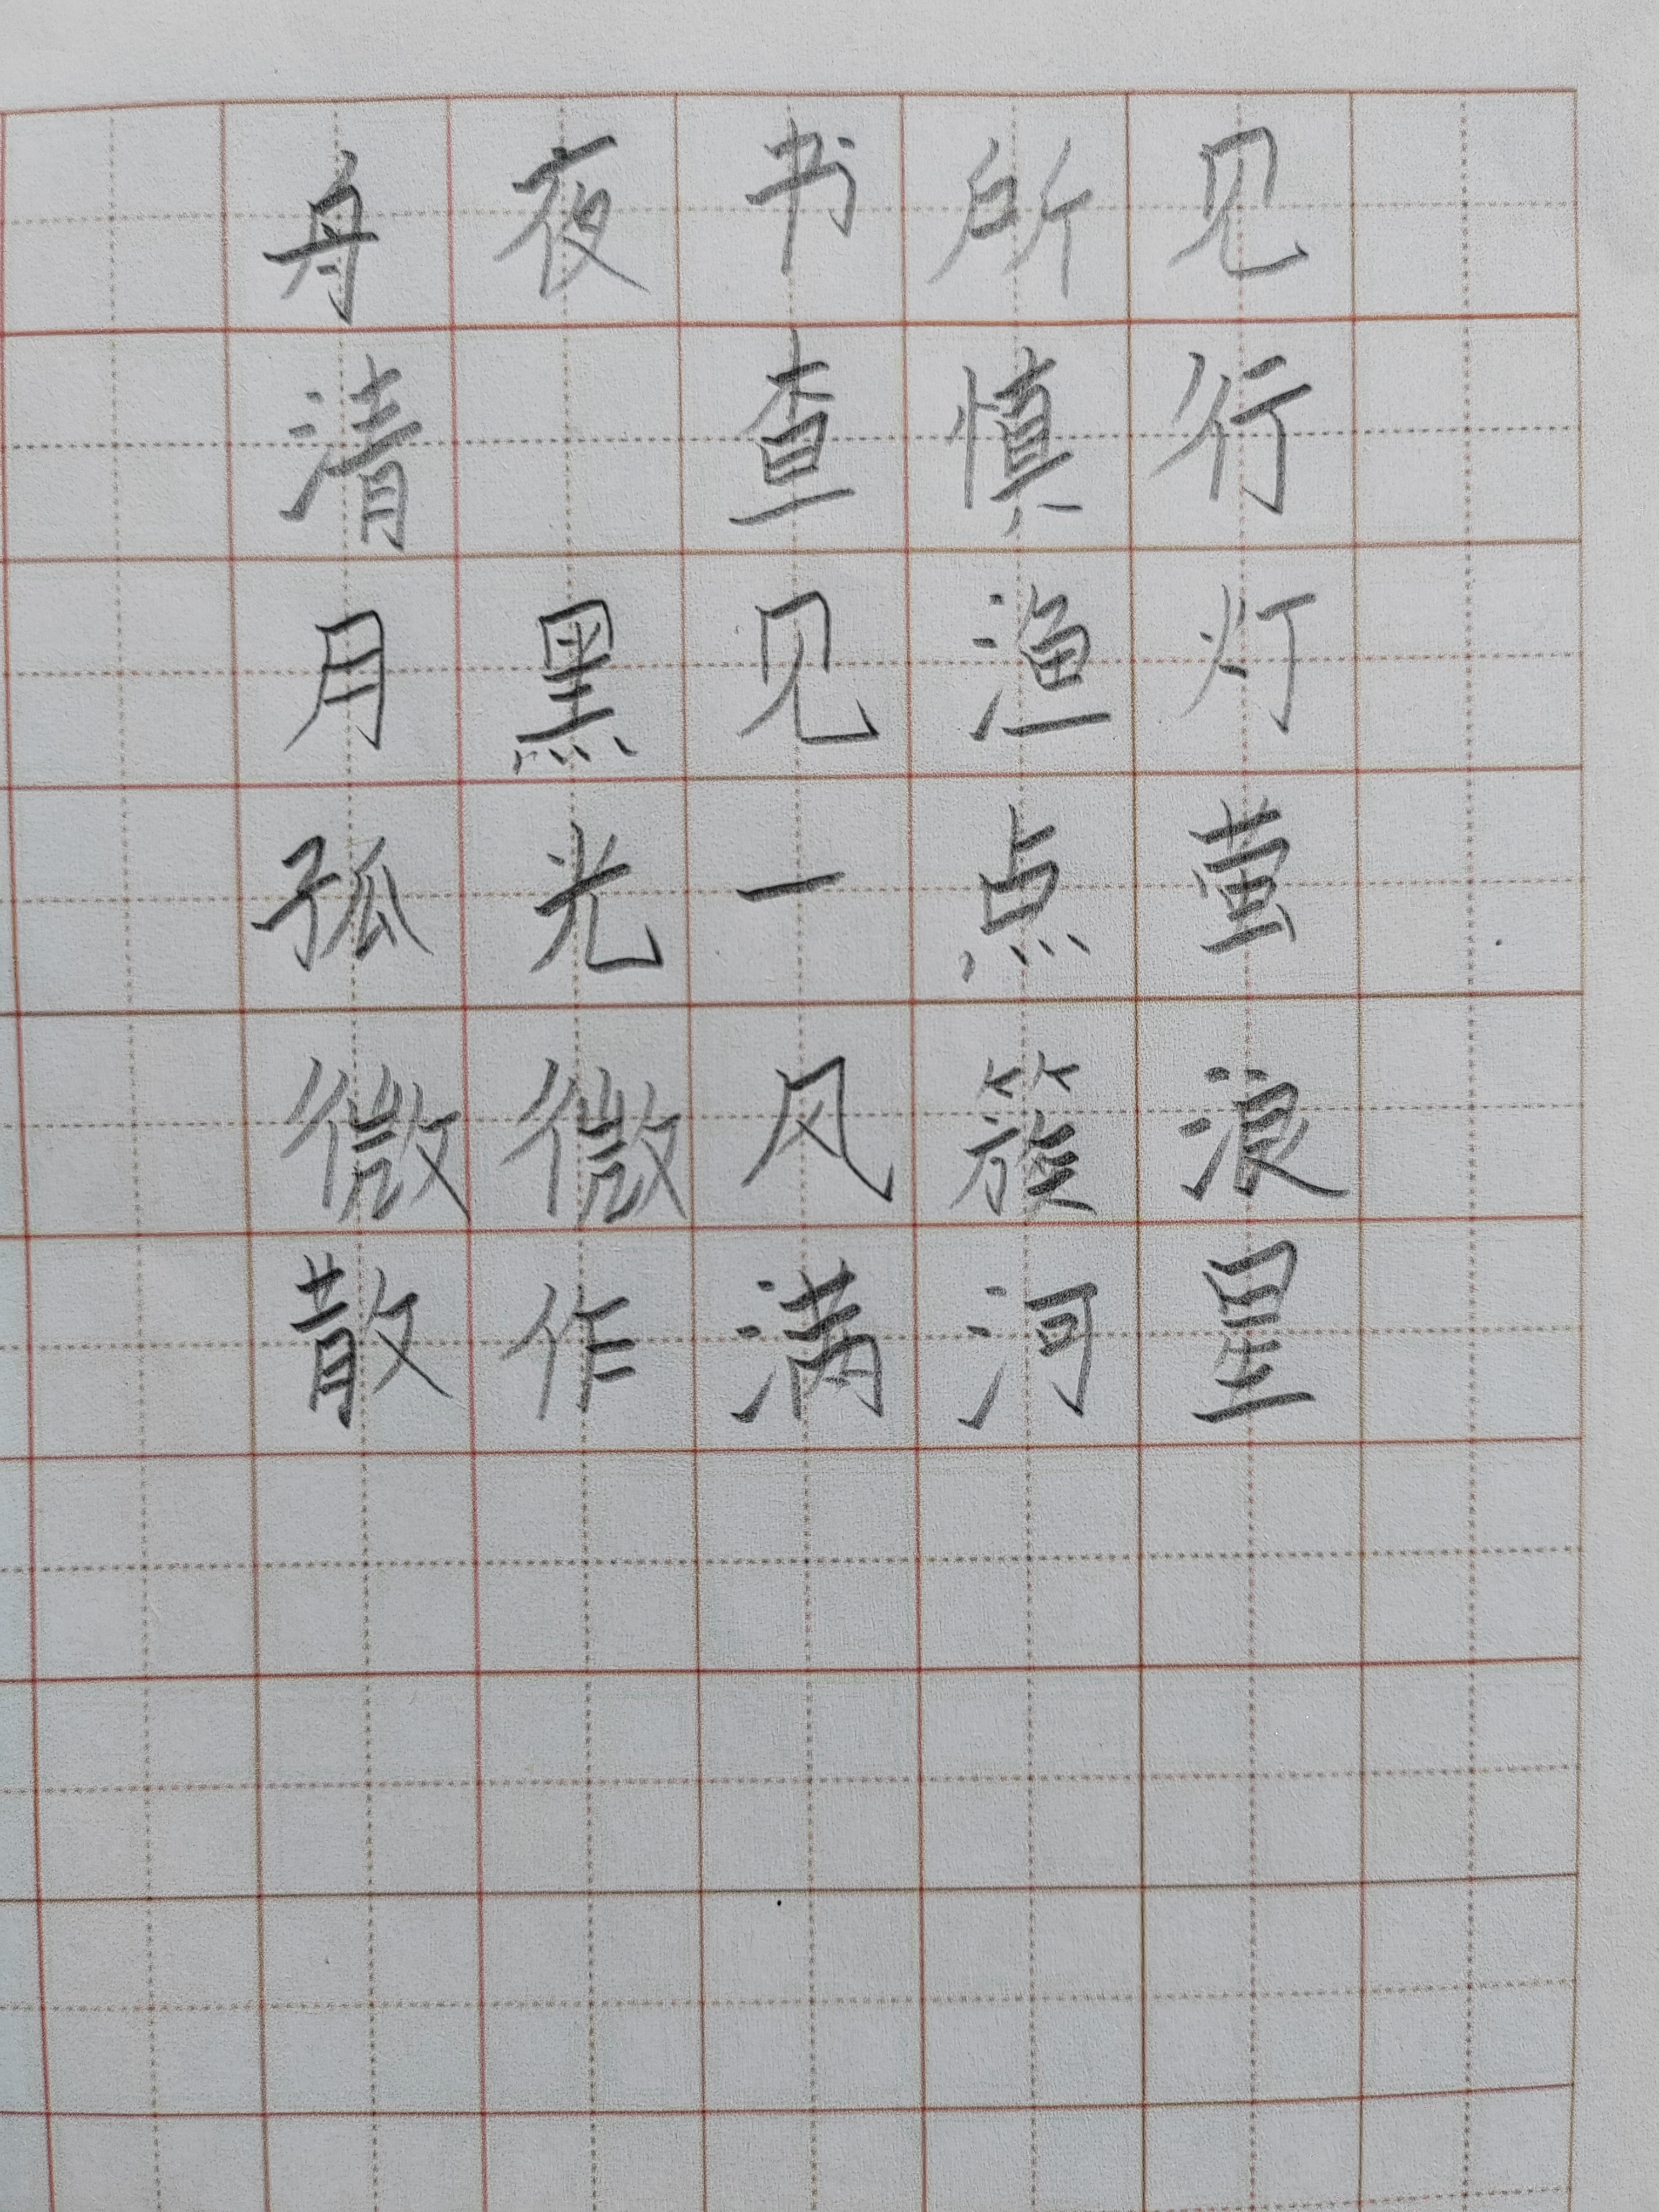 舟夜书所见
清 查慎行
月黑见渔灯
孤光一点萤
微微风簇浪
散作满河星